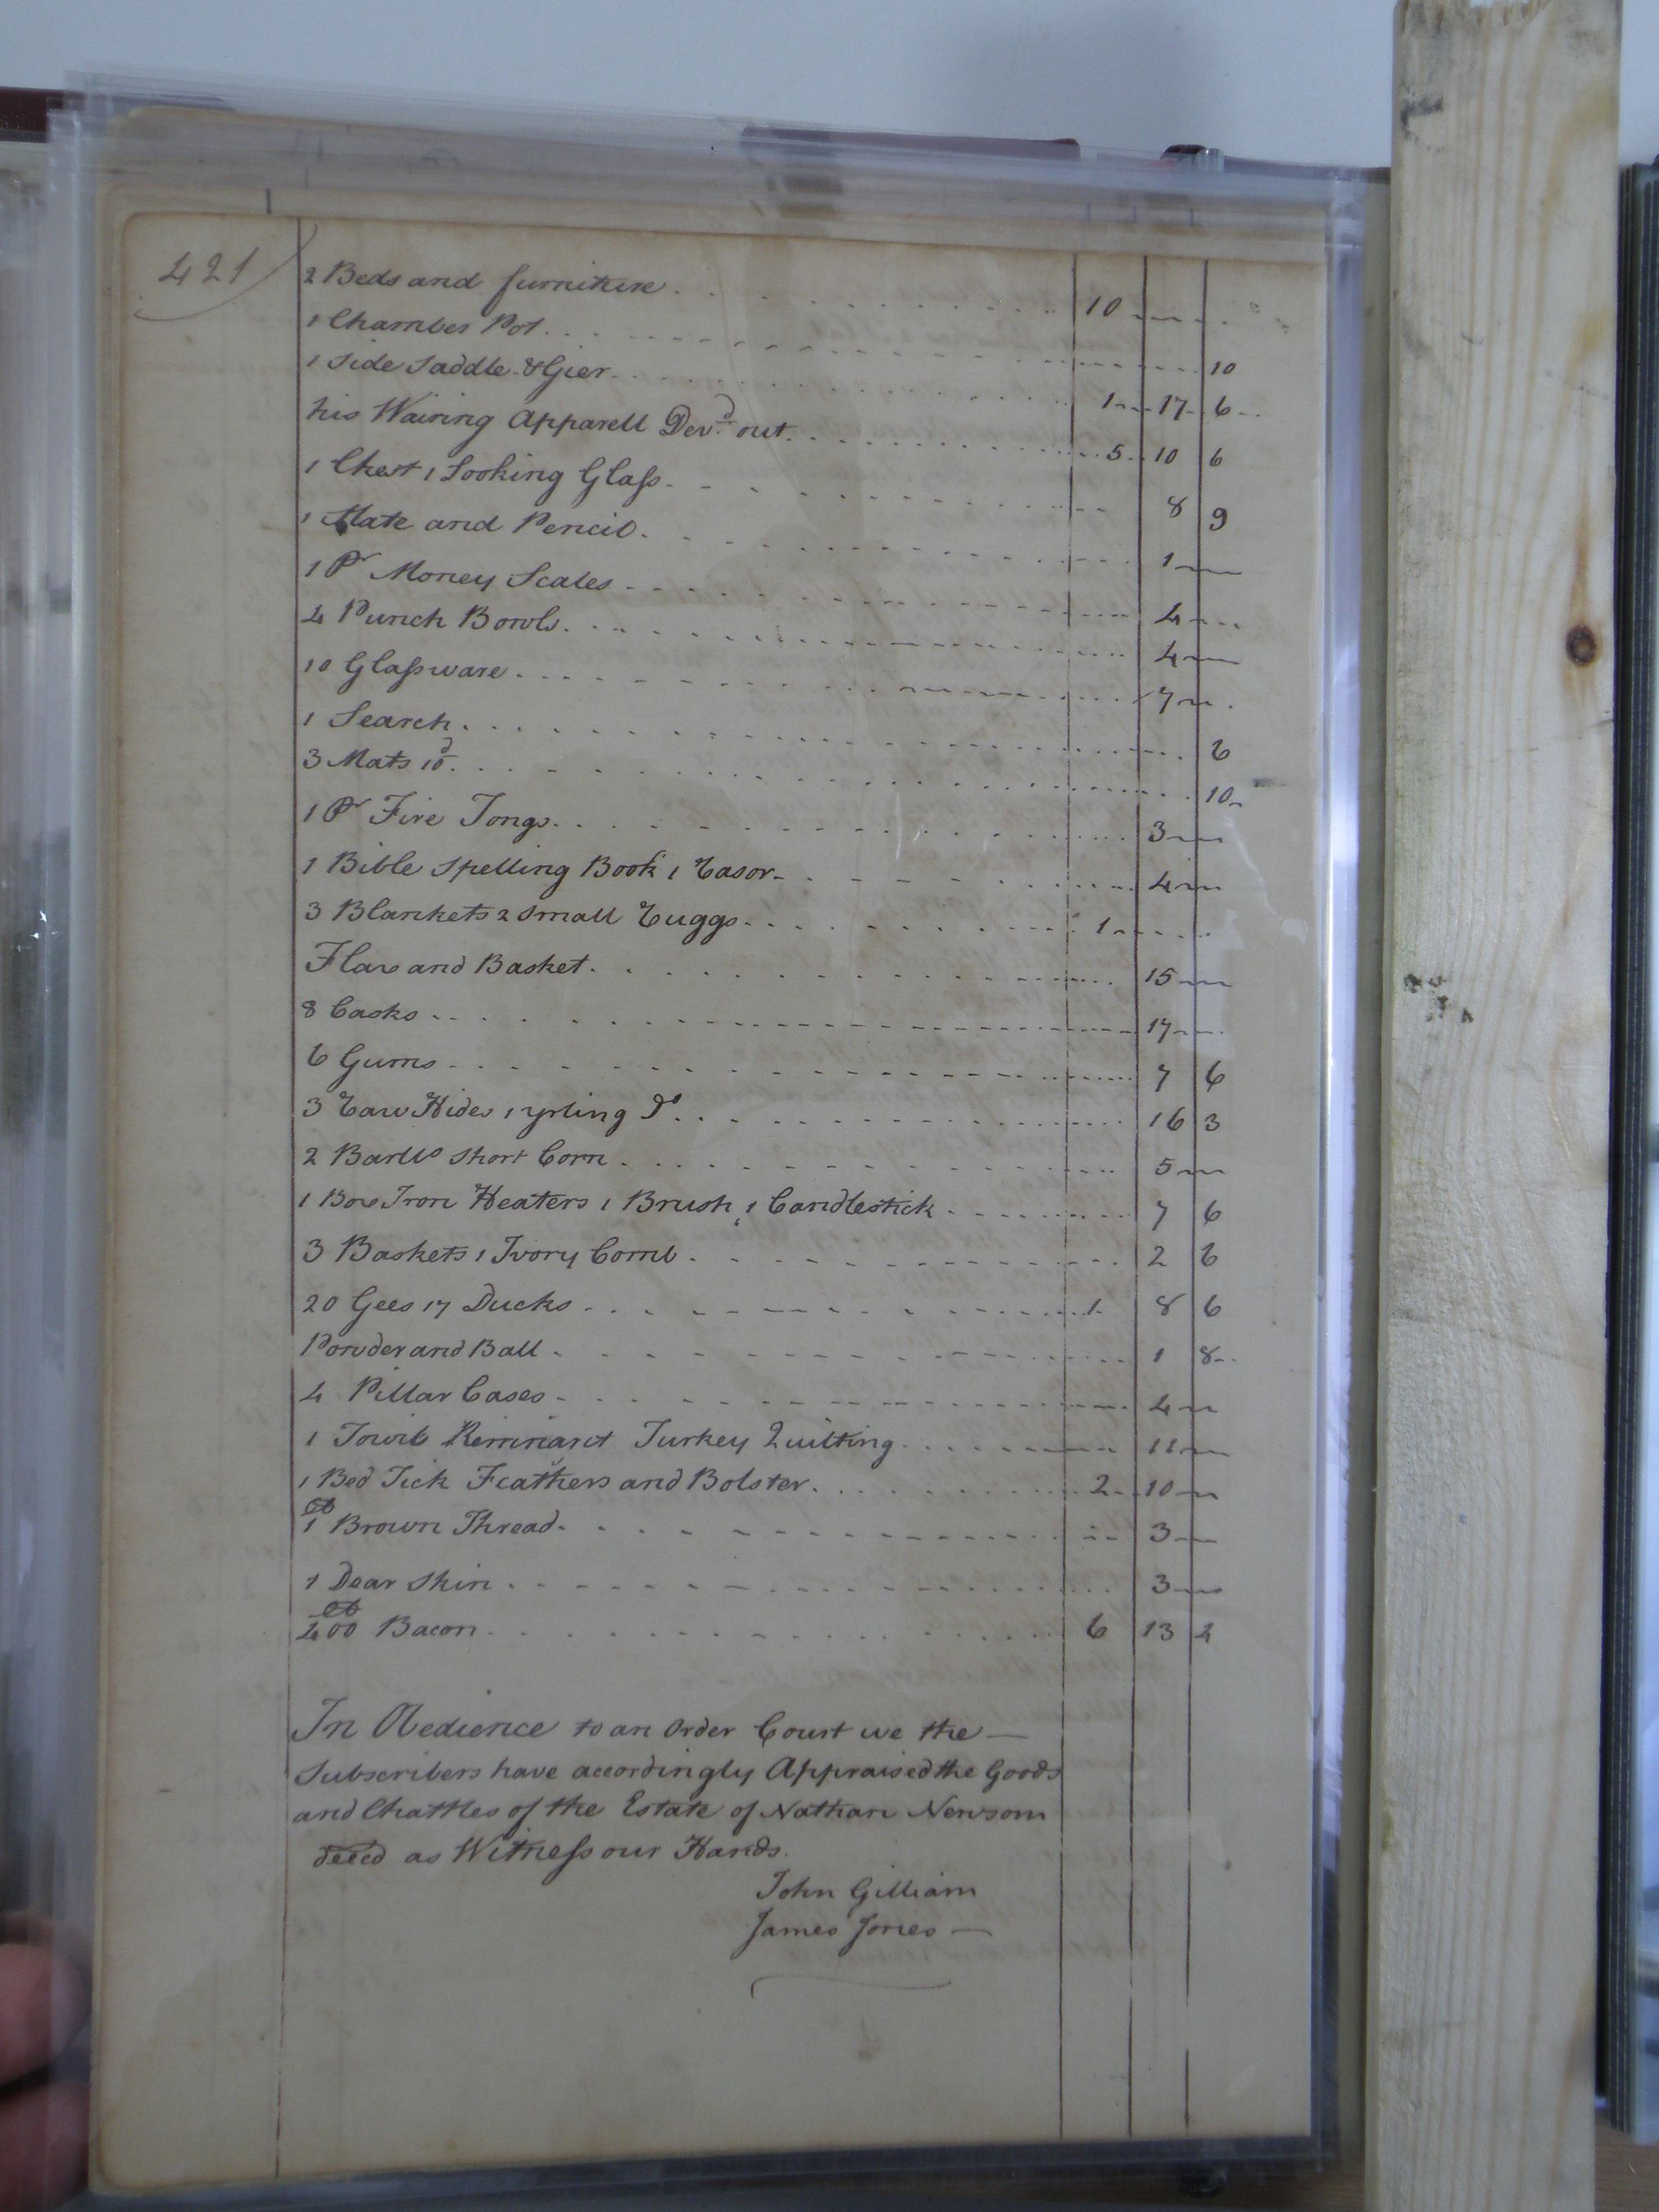 421
2 Beds and furniture 10
1 Chamber Pot 10
1 Side Saddle & Gier 1 17 6
his Wairing Apparell Devd. out 5 10 6
1 Chest 1 Looking Glass 8 9
1 Slate and Pencil 1
1 Pr Money Scales 4
4 Punch Bowls 4
10 Glassware 7
1 Search 6
3 Mats 10d 10
1 Pr Fire Tongs 3
1 Bible Spelling Book 1 Rasor 4
3 Blankets 2 Small Ruggs 1
Flax and Basket 15
8 Casks 17
6 Gums 7 6
3 Raw Hides 1 yrling Do 16 3
2 Barlls Short Corn 5
1 Box Iron Heaters 1 Brush 1 Candlestick 7 6
3 Baskets 1 Ivory Comb 2 6
20 Gees 17 Ducks 1 8 6
Powder and Ball 1 8
4 Pillar Cases 4
1 Towil Remnant Turkey Quilting 11
1 Bed Tick Feathers and Bolster 2 10
1 lb Brown Thread 3
1 Dear Skin 3
400 lb Bacon 6 13 4
In Obedience to an Order Court we the
Subscribers have accordingly Appraised the Goods
and Chattles of the Estate of Nathan Newsom
decd as Witness our Hands.
John Gilliam
James Jones